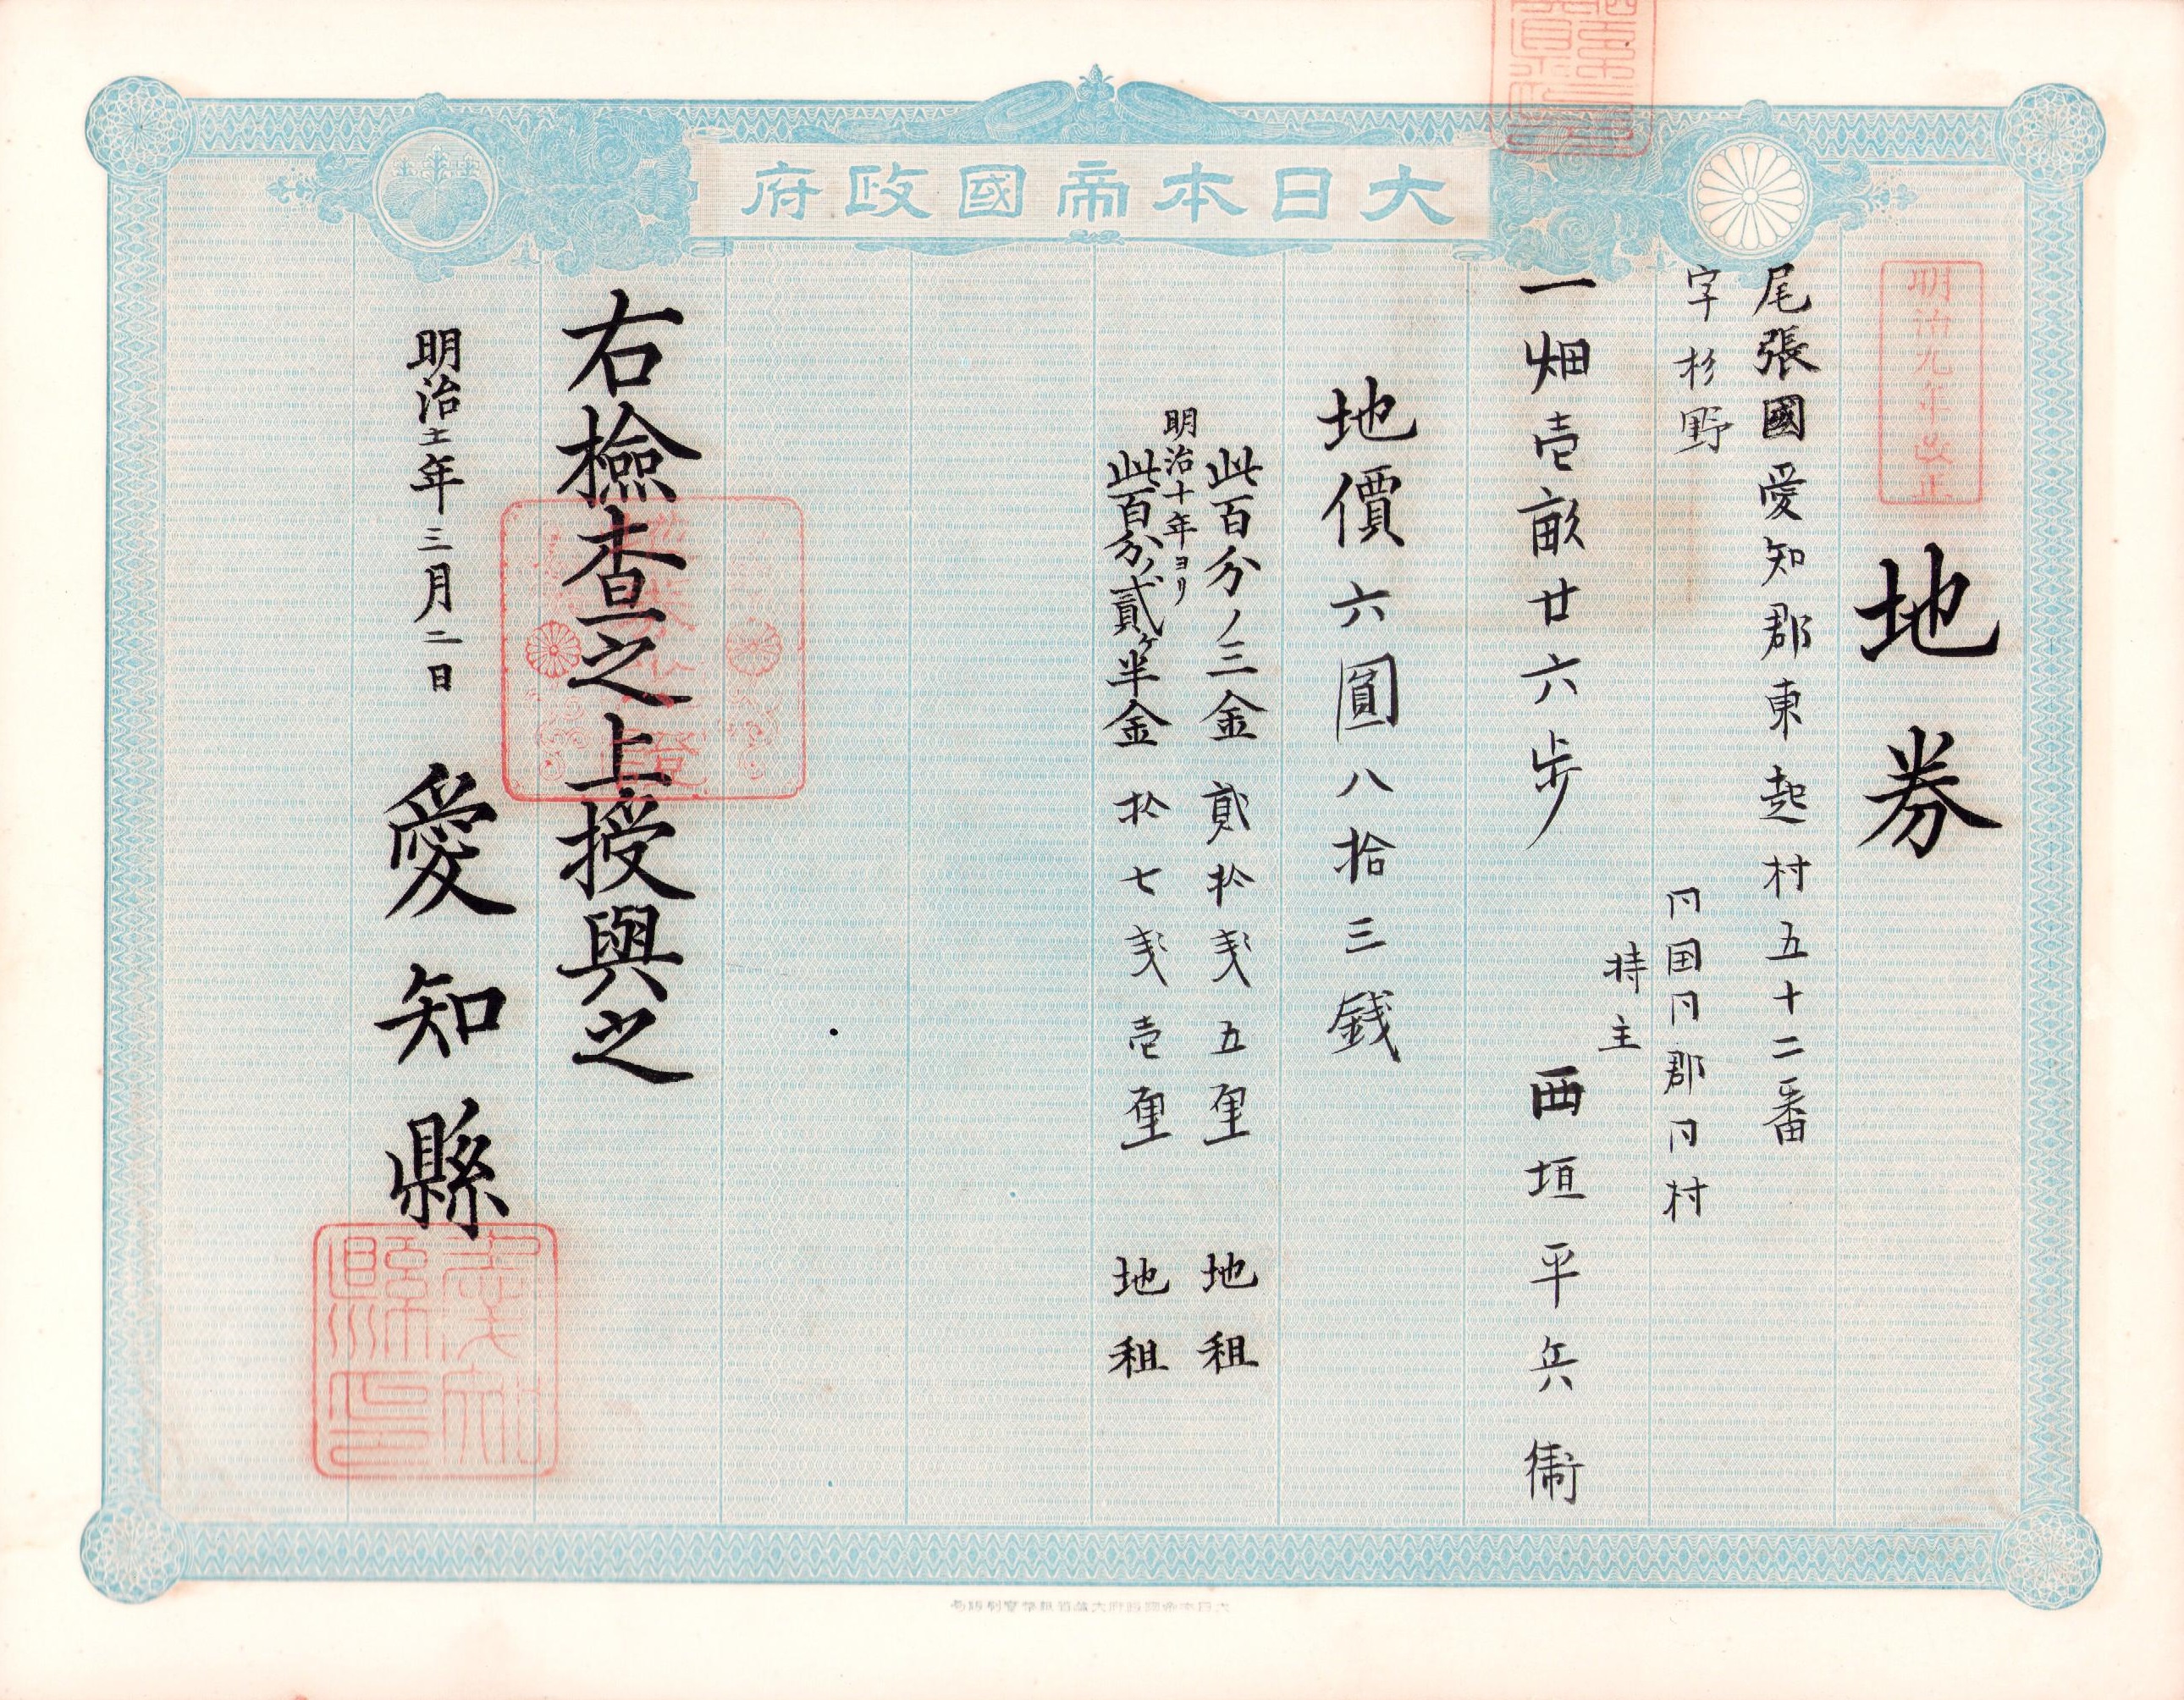 大日本帝國政府
明治九年改正
地券
尾張國愛知郡東起村五十二番
字杉野
同国同郡同村
持主
一畑壱畝廿六歩
西垣平兵衛
地價六圓八拾三錢
此百分ノ三金貳拾戋五厘 地租
明治十年ヨリ
此百分ノ貳ヶ半金拾七戋壱厘 地租
右檢查之上授與之
明治十二年三月二日
愛知縣
愛知縣印